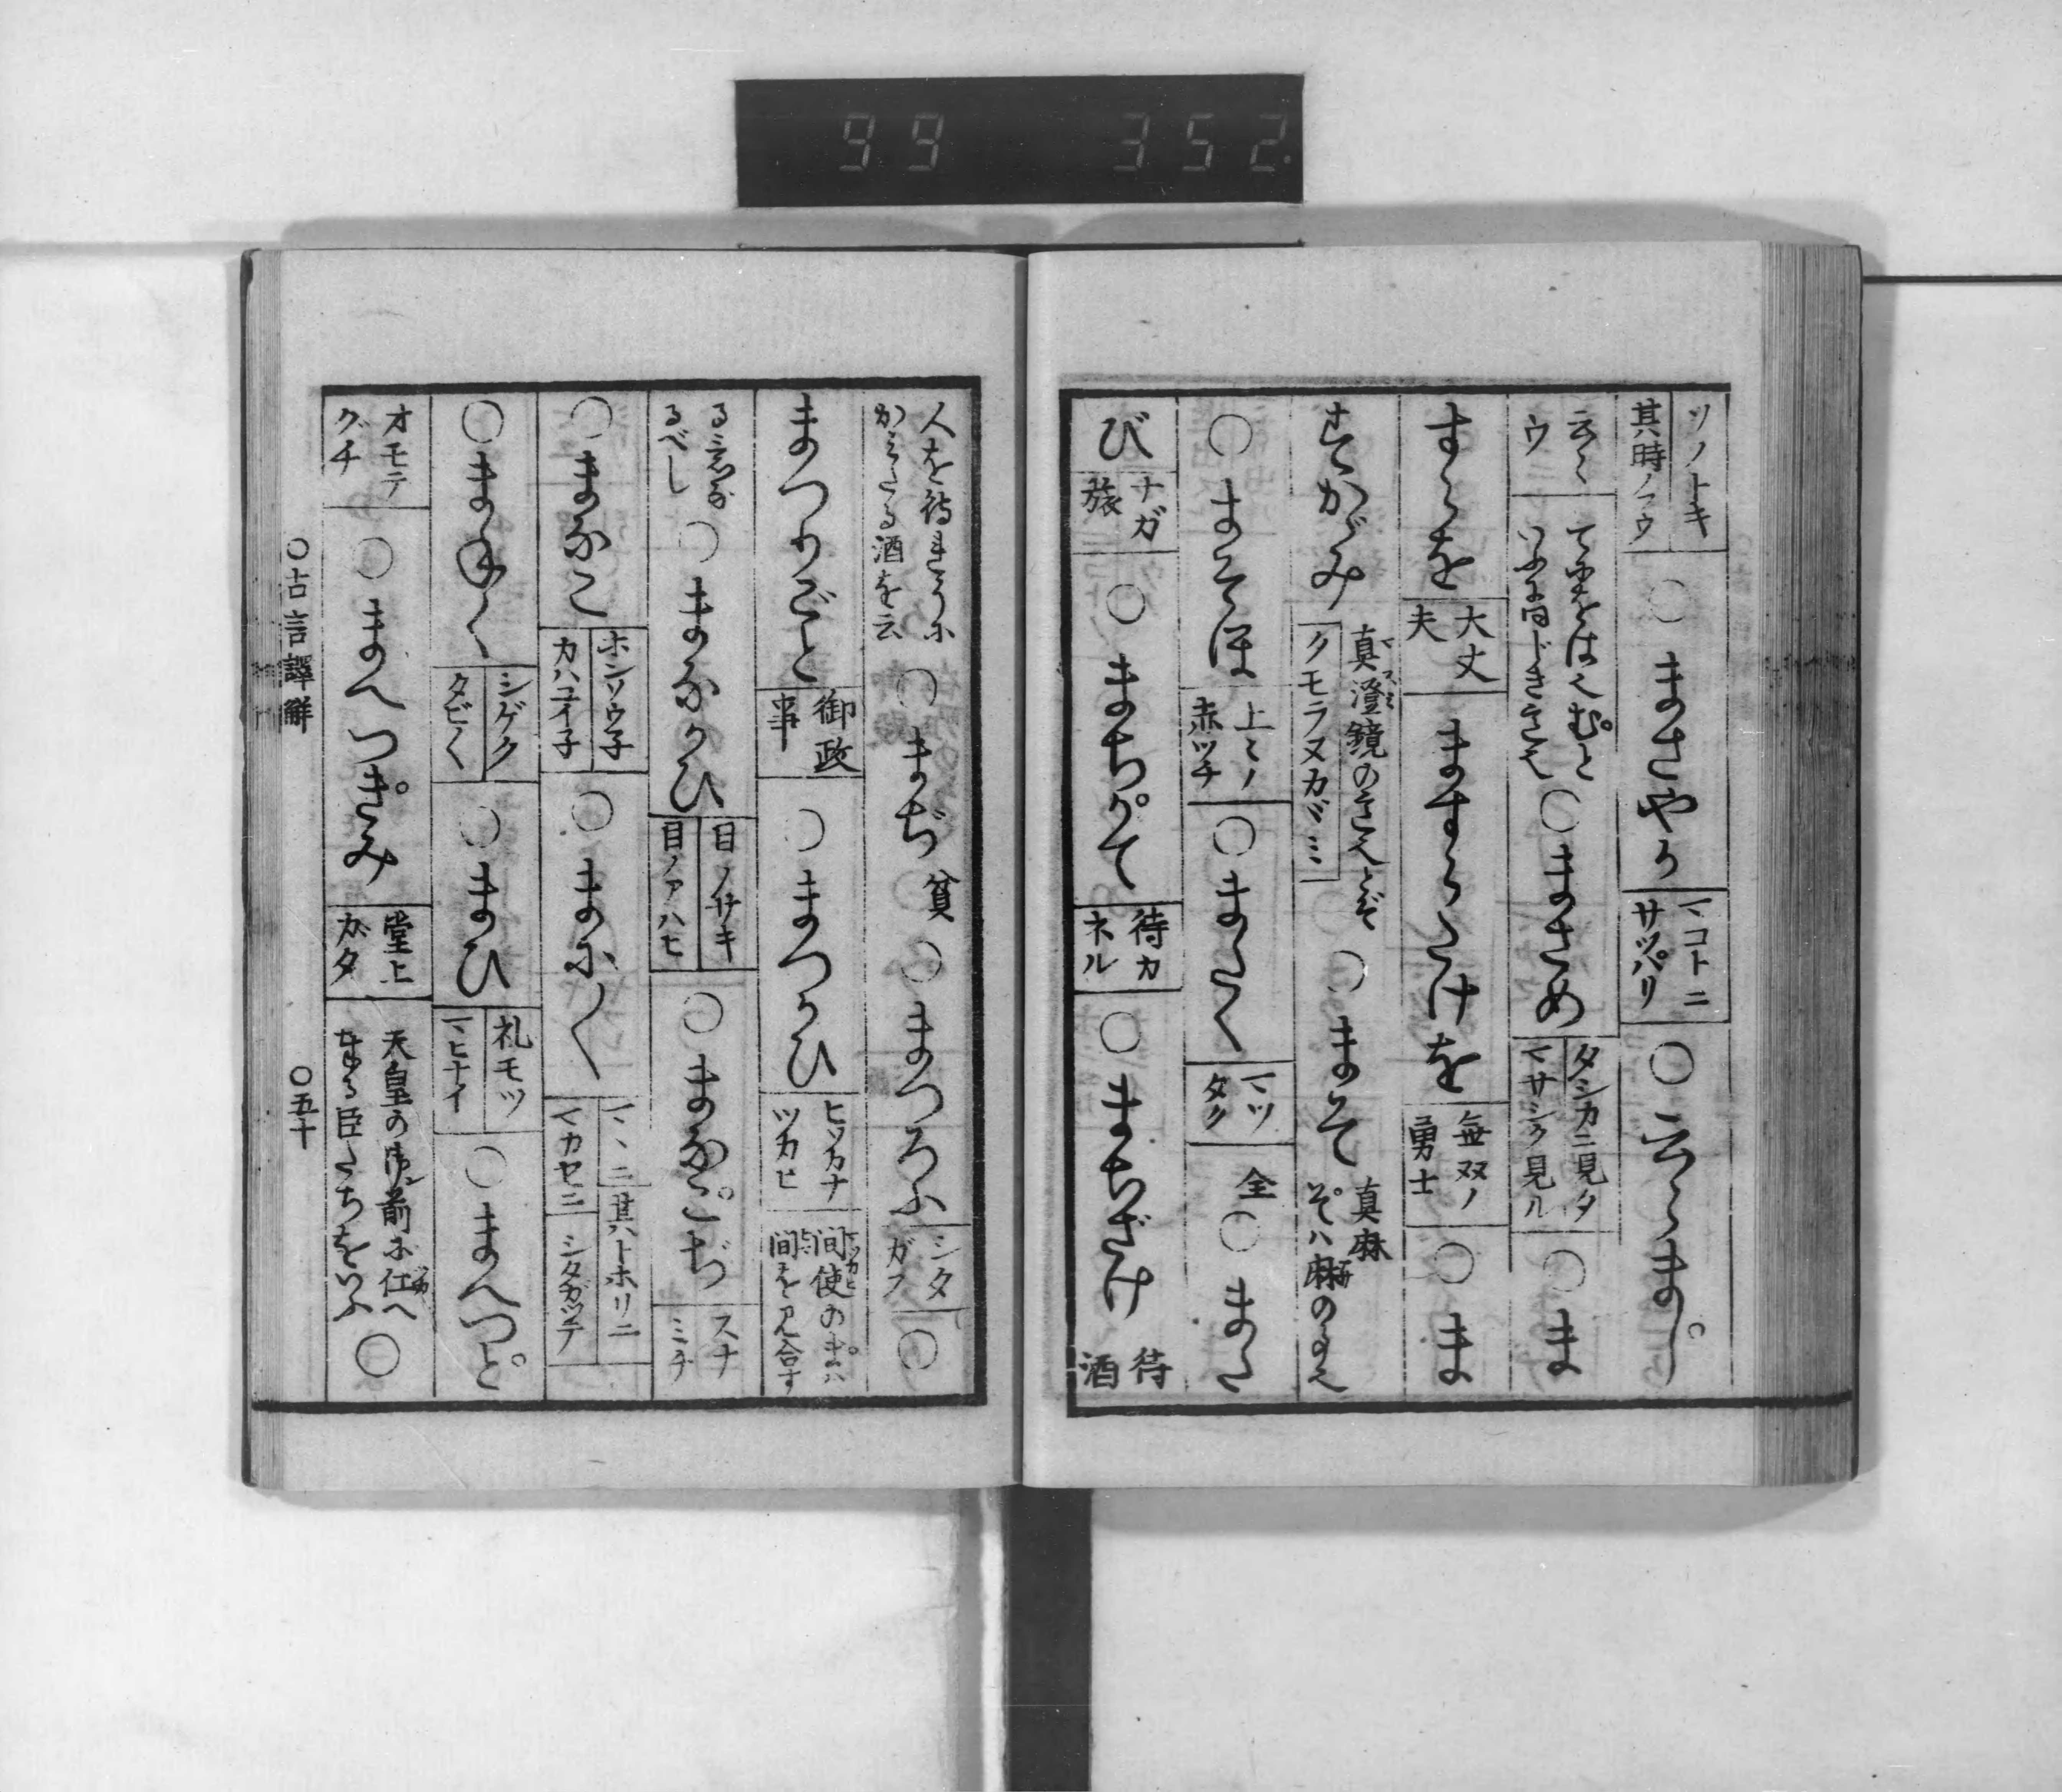 99 352
ソノトキ
其時ノヤウ
○まさやか
マコトニ
サツパリ
○云々まし
云々
ウ
てにをはくむと
いふに同じきさま
○まさめ
タシカニ見タ
マサシク見ル
○ま
すらを
大丈
夫
ますらたけを
無双ノ
勇士
○ま
すかゞみ
真澄鏡のこゝろとぞ
クモラヌカヾミ
○まそ
真麻
そハ麻の
○まそほ
上ミノ
赤ツチ
○またく
マツ
タク
全
○また
び
ナガ
旅
○まちがて
待カ
ネル
○まちざけ
待
酒
人を待
る酒を云
○まぢ
貧
○まつろふ
シタ
ガフ
○
まつりごと
御政
事
○まつかひ
ヒソカナ
ツカヒ
間使の
間を見合す
る意な
るべし
○まなかひ
目ノサキ
目ノアハヒ
○まなごぢ
スナ
ミチ
○まなこ
ホンソウ子
カハユイ子
○まに〳〵
マヽニ
マカセニ
其ハトホリニ
シタガツテ
○まねく
シゲク
タビ〳〵
○まひ
礼モツ
マヒナイ
○まへつと
オモテ
グチ
○まへつぎみ
堂上
ガタ
天皇の御前に仕へ
まつる臣たちをいふ
○
○古言譯解
○五十